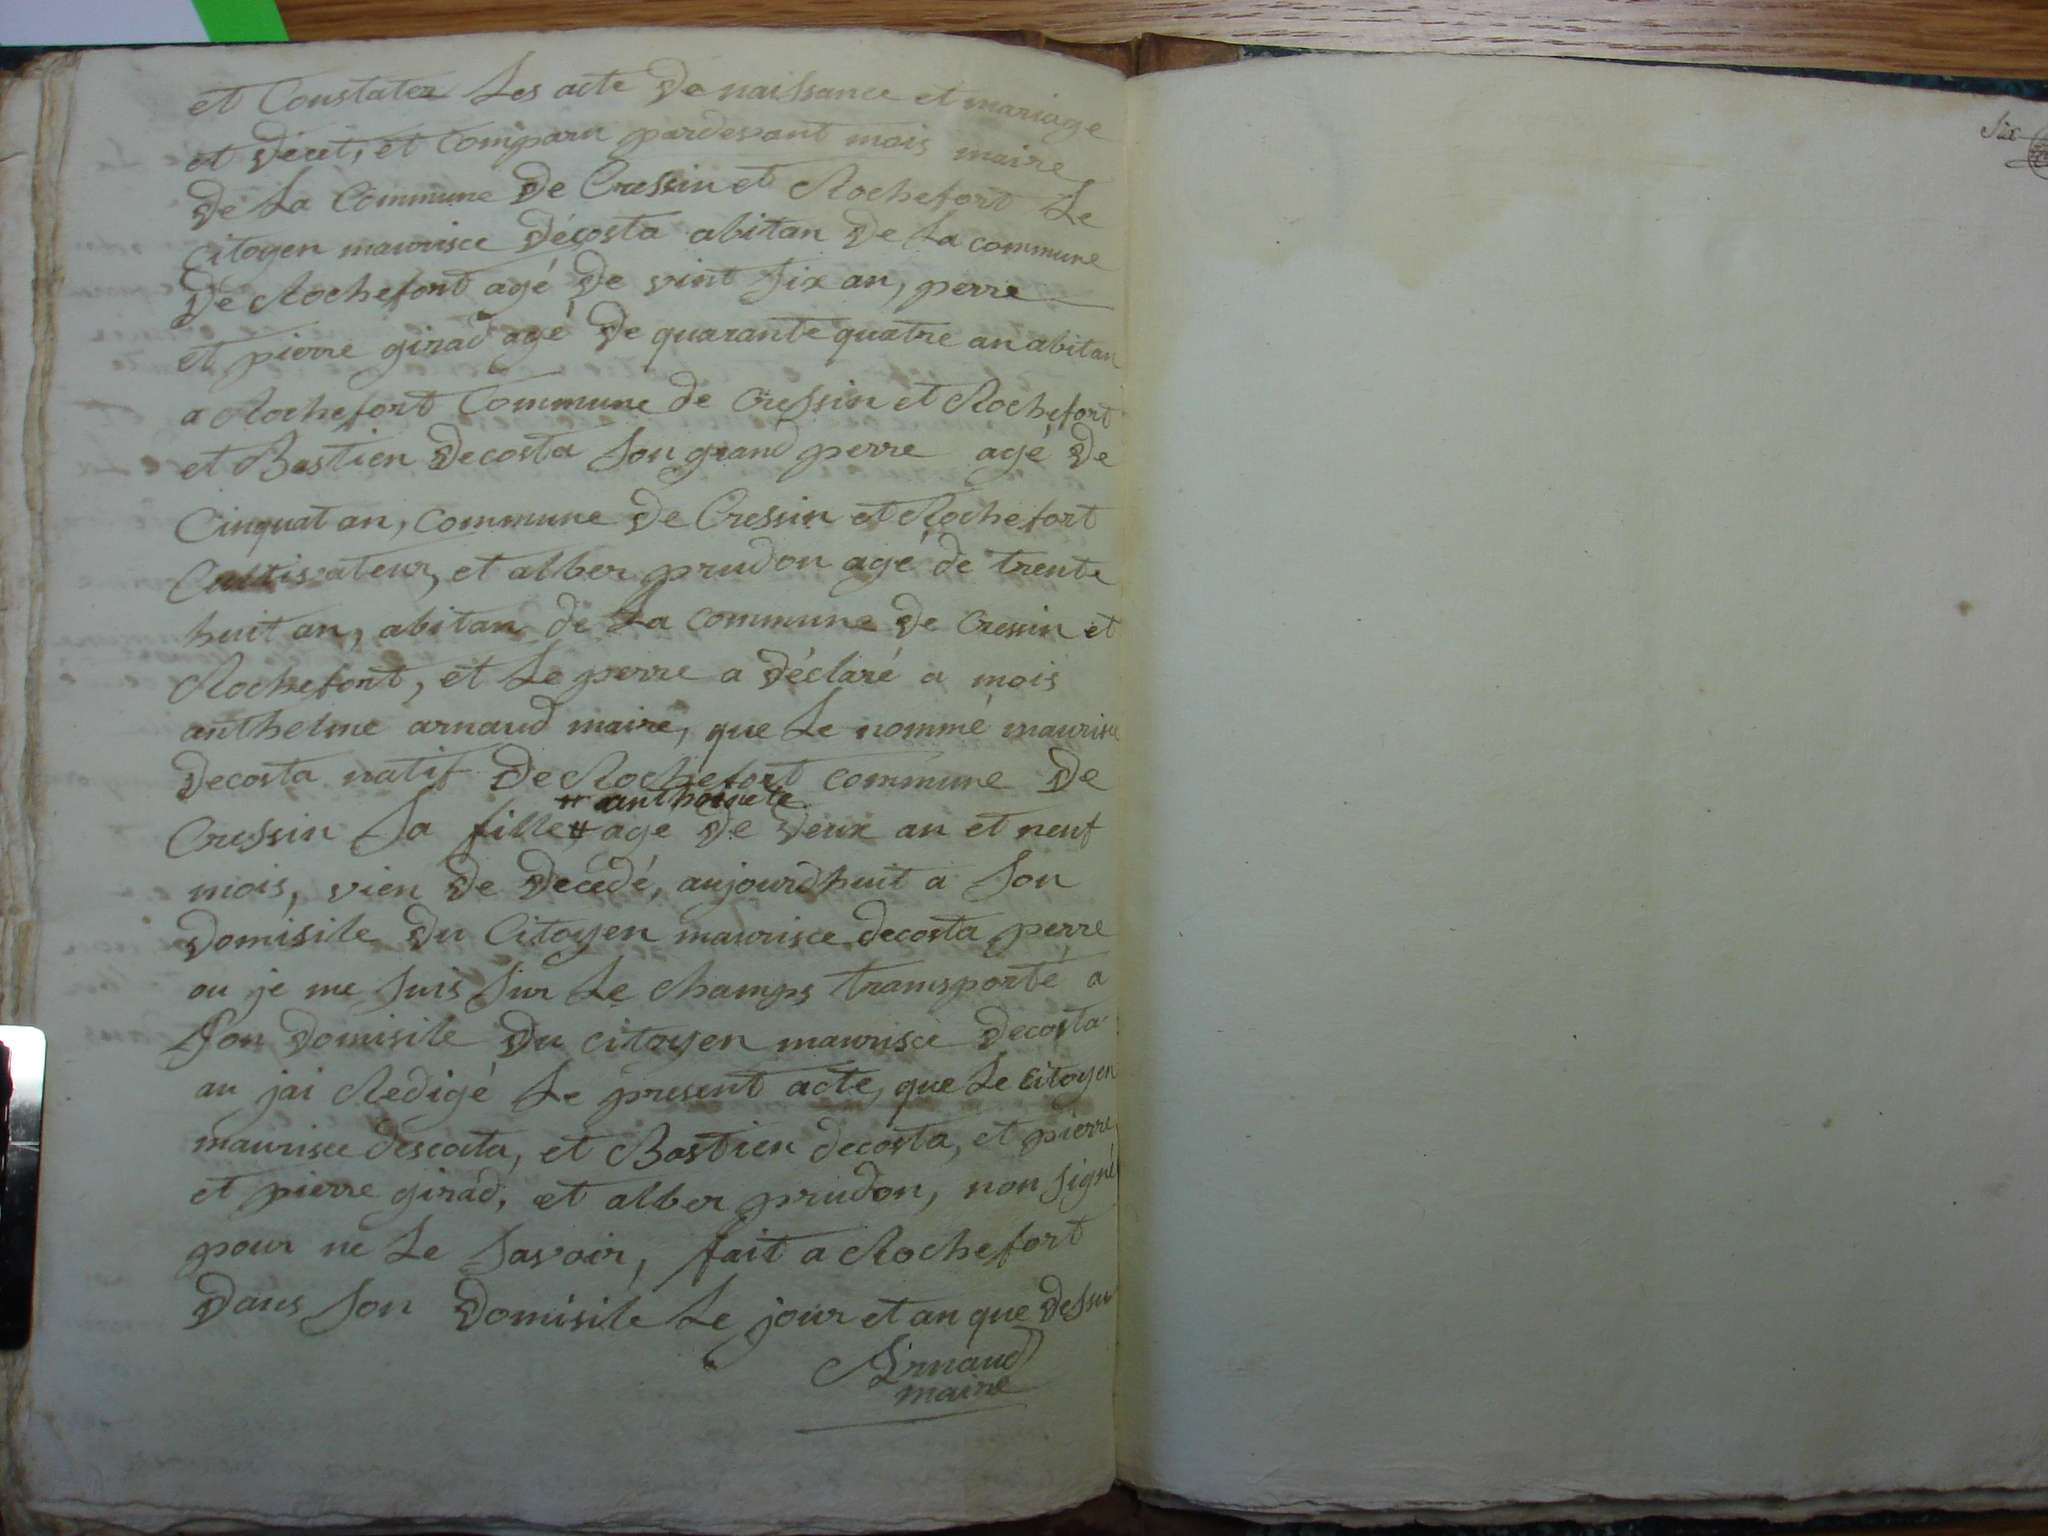 et Constater Les acte De naissance et mariage
et décet, et Comparu pardevant mois maire
De La Commune De Cressin et Rochefort Le
Citoyen maurisce Décosta abitan De La commune
De Rochefort agé De vint six an, perre
et pierre girad agé De quarante quatre an abitan
a Rochefort Commune de Cressin et Rochefort
et Bastien Decosta son grand perre agé De
Cinquat an, commune De Cressin et Rochefort
Cultivateur, et alber prudon agé de trente
huit an, abitan de La commune De Cressin et
Rochefort, et Le perre a déclaré a mois
anthelme arnaud maire, que Le nommé maurisce
Decosta natif De Rochefort commune De
# anthoinete
Cressin sa fille # age De Deux an et neuf
mois, vien De Decédé, aujourdhuit a son
Domisile Du Citoyen maurisce decosta perre
ou je me suis sur Le champs transporté a
son Domisile Du citoyen maurisce Decosta
au jai Redigé Le present acte, que Le Citoyen
maurisce descota, et Bastien decosta, et pierre
et pierre girad, et alber prudon, non signé
pour ne Le savoir, fait a Rochefort
Dans son Domisile Le jour et an que Dessu
Arnaud
maire
six